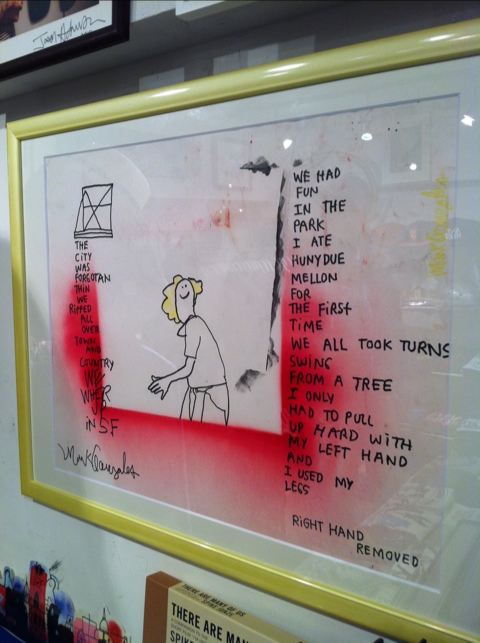 THE
CITY
WAS
FORGOTAN
THIN
WE
RIPPED
ALL
OVER
TOWN
AND
COUNTRY
WE
WHER
UP
iN SF
Mark Gonzales
WE HAD
FUN
IN THE
PARK
I ATE
HUNYDUE
MELLON
FOR
THE FIRST
TIME
WE ALL TOOK TURNS
SWING
FROM A TREE
I ONLY
HAD TO PULL
UP HARD WITH
MY LEFT HAND
AND
I USED MY
LEGS
RIGHT HAND
REMOVED
Mark Gonzales
THERE ARE MANY OF US
THERE ARE MAN